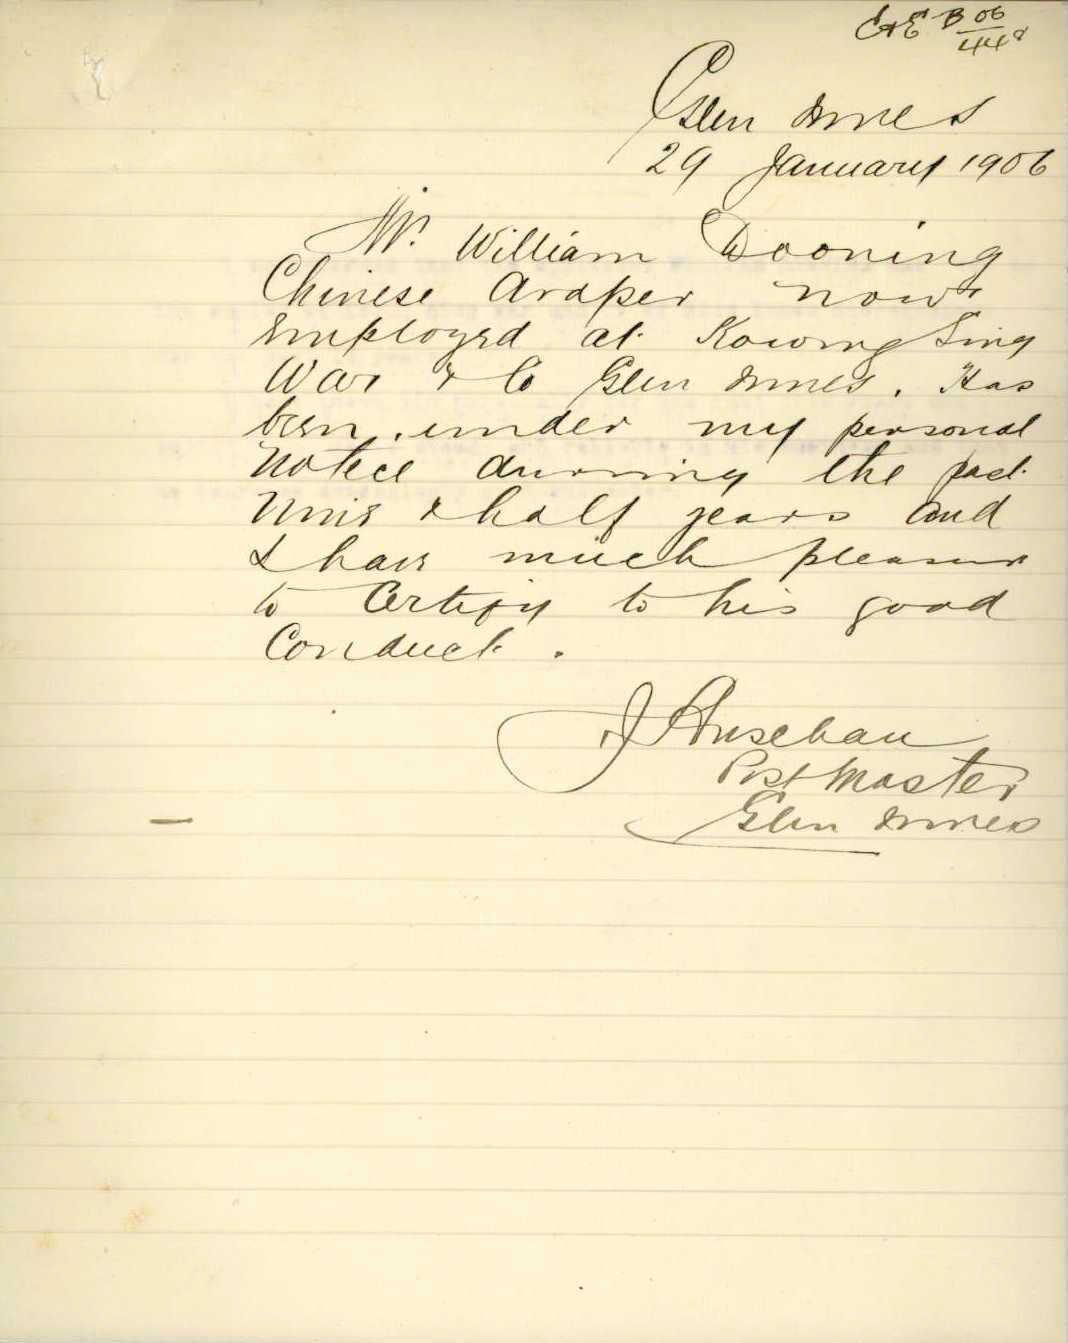 C & E B 06/448
Glen Innes
29 January 1906
Mr. William Dooning
Chinese draper now
employed at Kowong Sing
War & Co Glen Innes. Has
been under my personal
notice durring the past
nine & half years and
I have much pleasure
to Certify to his good
Conduct.
J
Post Master
Glen Innes